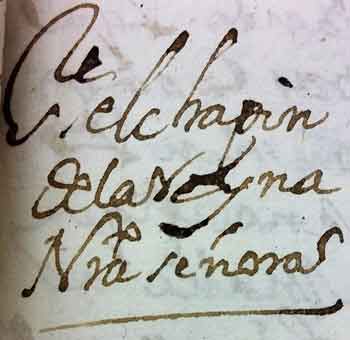 el chapin
de la Reyna
Nrª señora